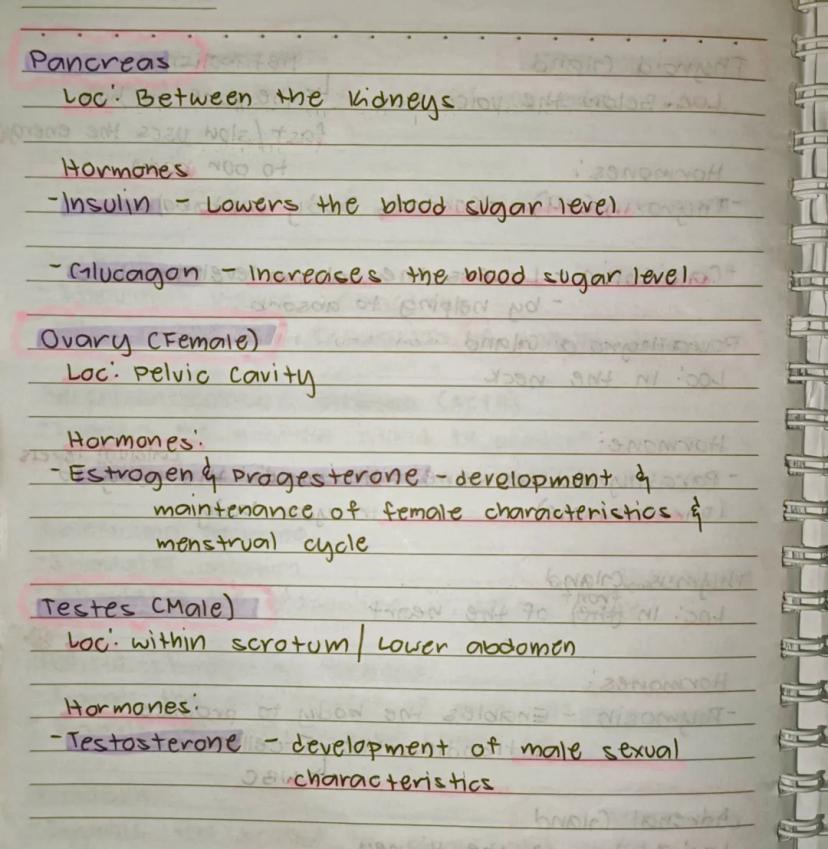 Pancreas
Loc: Between the kidneys
Hormones
- Insulin - Lowers the blood sugar level
- Glucagon - Increases the blood sugar level
Ovary (Female)
Loc: Pelvic Cavity
Hormones:
- Estrogen & Progesterone - development &
maintenance of female characteristics &
menstrual cycle
Testes (Male)
Loc: within scrotum / Lower abdomen
Hormones:
- Testosterone - development of male sexual
characteristics